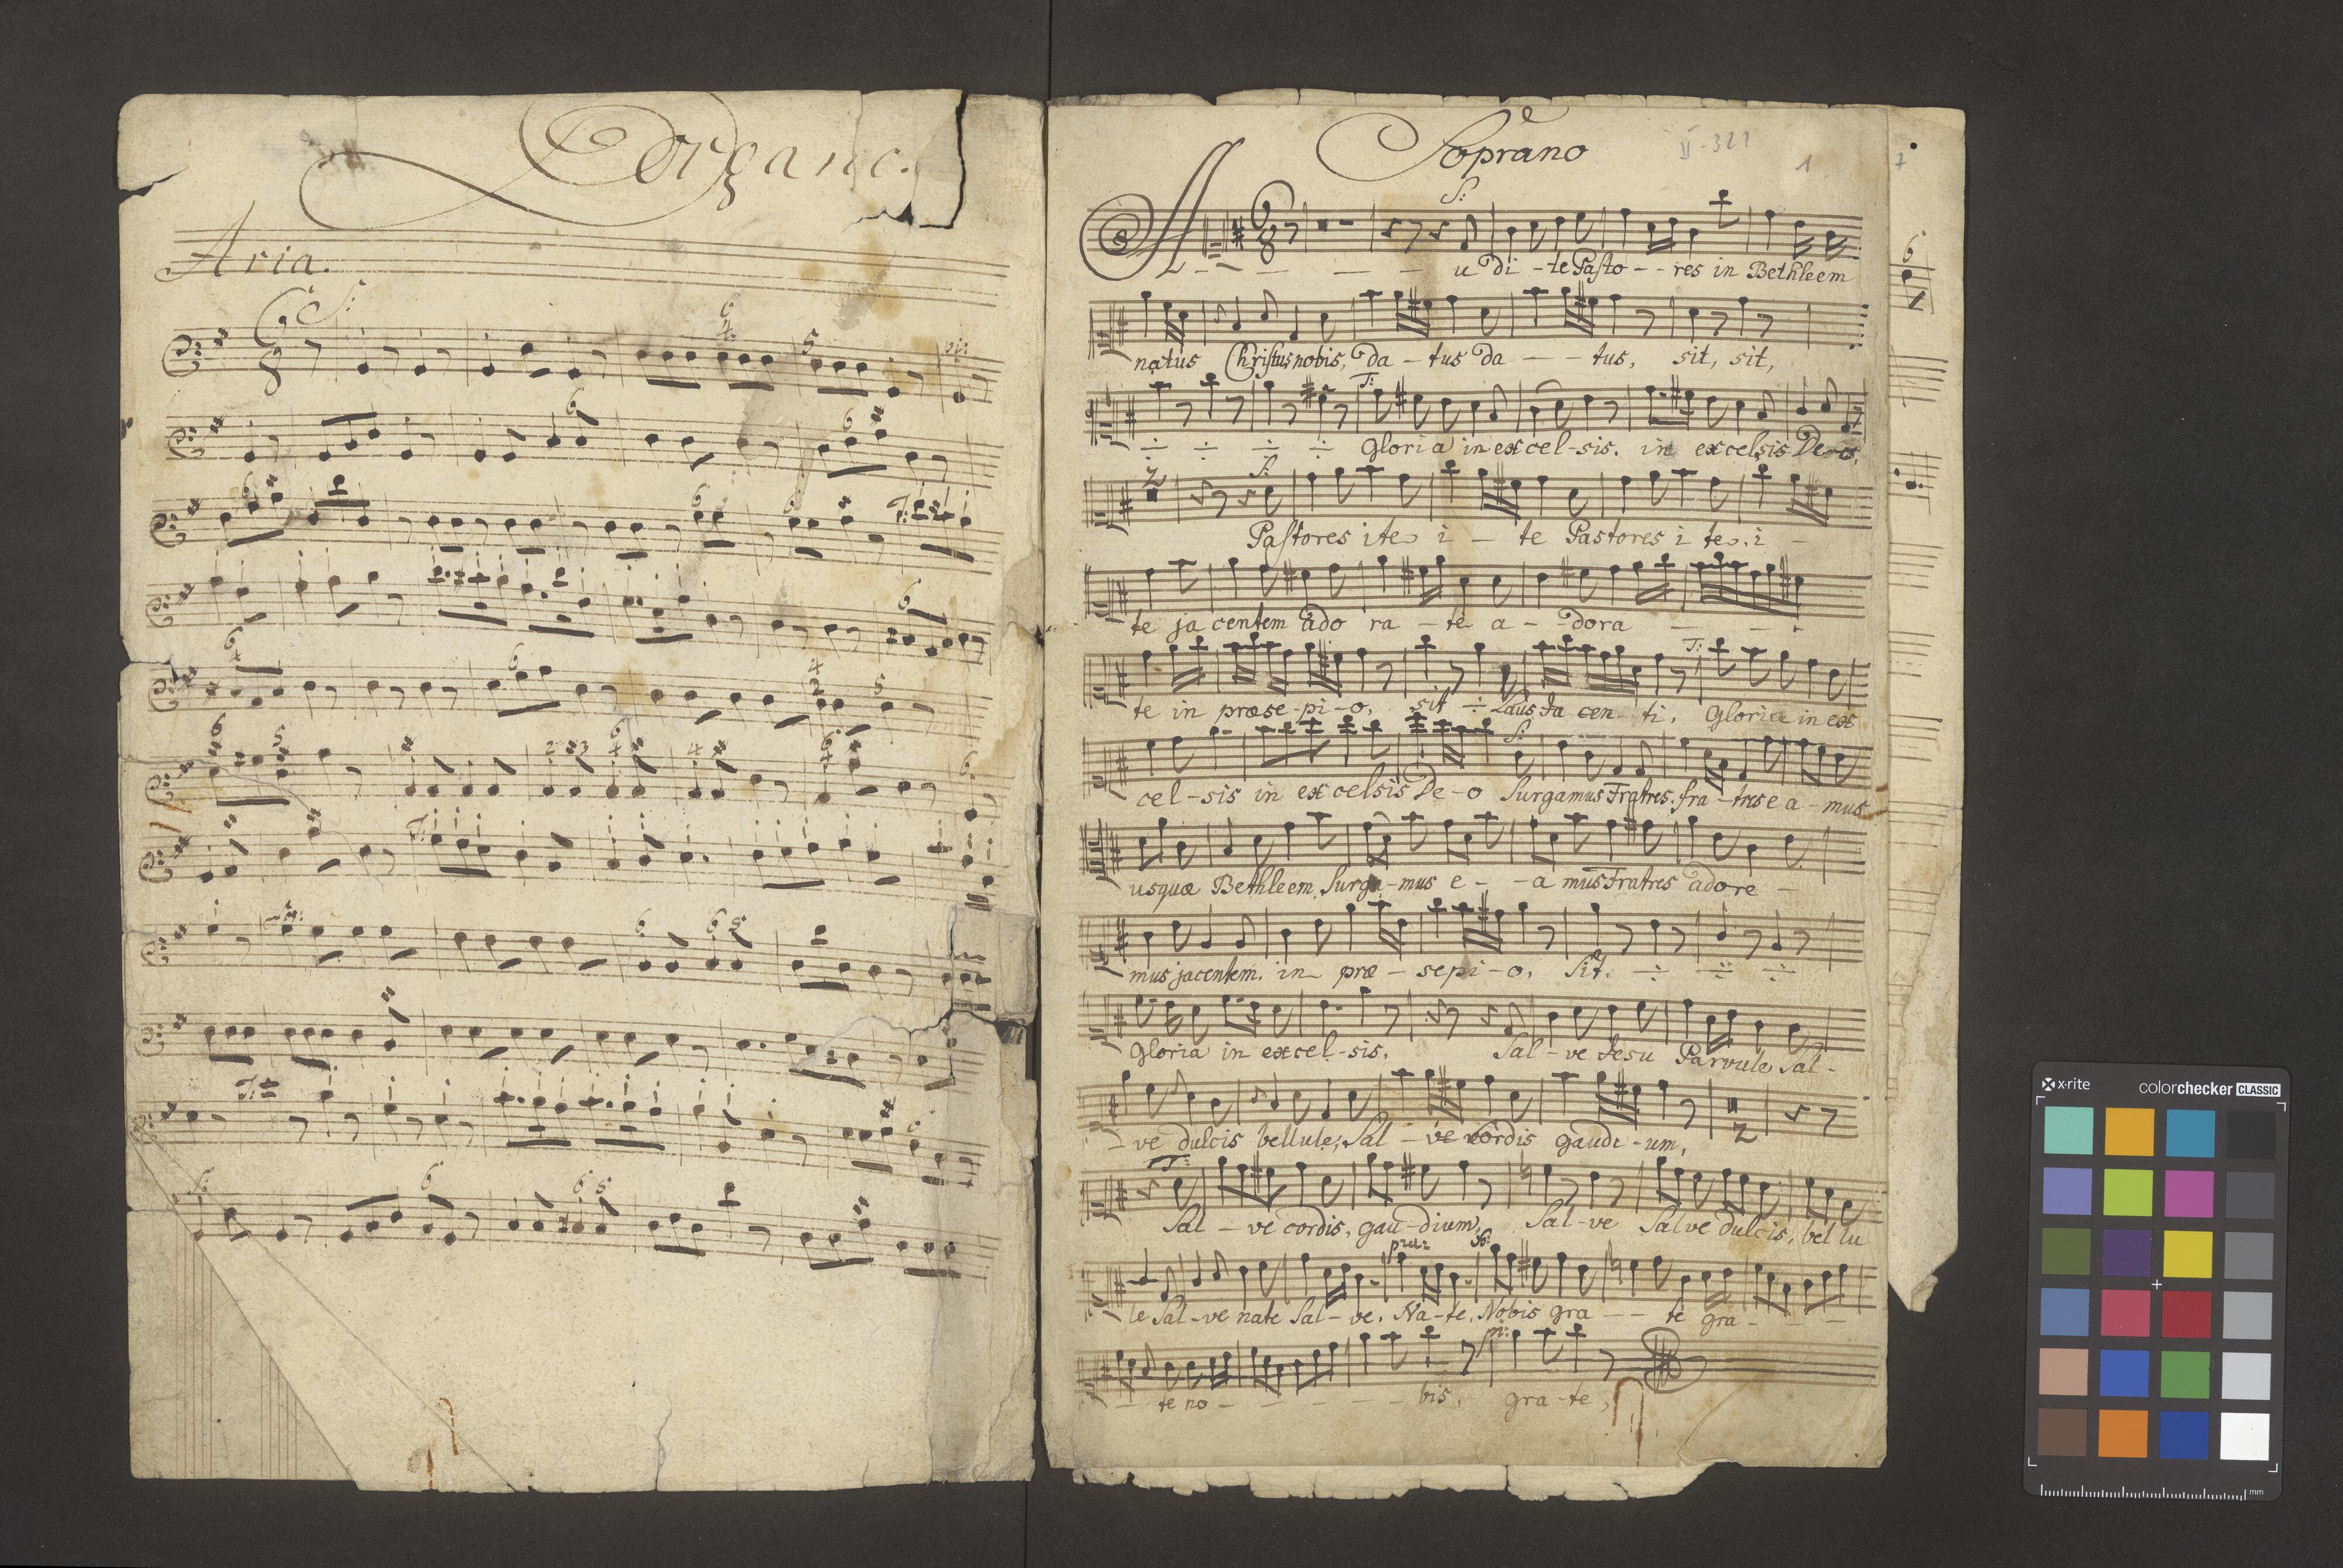 Organo.
Aria.
6
8
S:
6
4
5
pia:
6
6
6
6
6
T:
6
6
4
6
4
2
5
6
5
2 3
6
4
4
6
4
6
T:
S:
6
6 5
T:
6
S:
6
6 5
Soprano
II-321
1
7
S:
6
8
Audi-te Pasto--res in Bethleem
natus Christus nobis, da-tus da--tus, sit, sit,
T:
Gloria in excel-sis. in excelsis De-o.
2
S:
Pastores ite i-te Pastores i te. i-
te jacentem ado ra-te a--dora--
T:
te in præse-pi-o, sit ÷ Laus Ja cen ti, Gloria in ex
S:
cel-sis in excelsis De-o Surgamus Fratres. fra-tres e a-mus
usquæ Bethleem Surga-mus e--a mus Fratres adore-
mus jacentem. in præ-sepi-o, Sit. ÷ ÷ ÷
Gloria in excel-sis. Sal-ve Jesu Parvule Sal-
-ve dulcis bellule; Sal-ve cordis gaudi-um,
2
T:
Sal-ve cordis, gau-dium, Sal-ve Salve dulcis, bel lu
le Sal-ve nate Sal-ve. Na-te. Nobis gra--te gra---
-te no------bis, gra-te,
6
x-rite
colorchecker CLASSIC
mm